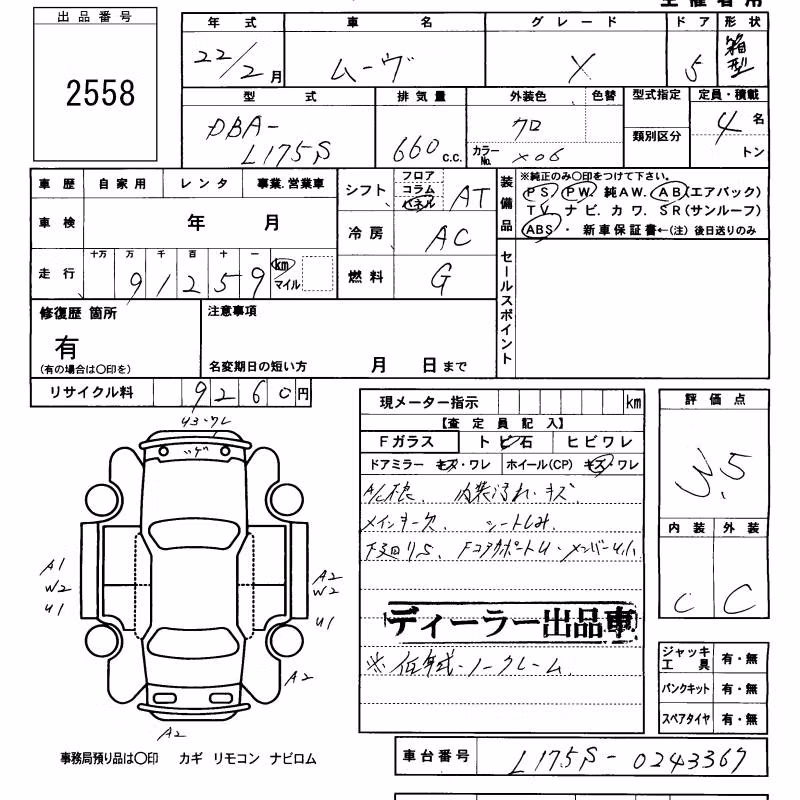 出品番号
2558
年式 車名 グレード ドア 形状
22/2月 ムーヴ X 5 箱型
型式 排気量 外装色 色替 型式指定 定員・積載
類別区分
DBA-L175S 660c.c. クロ カラーNo. X06 4名
トン
車歴 自家用 レンタ 事業.営業車
車検 年 月
走行 十万 万 千 百 十 一
91259 km マイル
シフト フロア コラム パネル AT
冷房 AC
燃料 G
装備品
※純正のみ○印をつけて下さい。
PS. PW. 純AW. AB(エアバック)
TV. ナビ. カワ. SR(サンルーフ)
ABS・ 新車保証書←(注) 後日送りのみ
セールスポイント
修復歴 箇所
有
(有の場合は○印を)
注意事項
名変期日の短い方 月 日まで
リサイクル料 9260円
現メーター指示 km
【査定員記入】
Fガラス トビ石 ヒビワレ
ドアミラー キズ・ワレ ホイール(CP) キズ・ワレ
内装汚れ・キズ
シートしみ
ディーラー出品車
※低年式・ノークレーム
評価点
3.5
内装 外装
C C
U3・ワレ
A1
W2
U1
A2
W2
U1
A2
A2
ジャッキ工具 有・無
パンクキット 有・無
スペアタイヤ 有・無
事務局預り品は○印 カギ リモコン ナビロム
車台番号 L175S-0243367